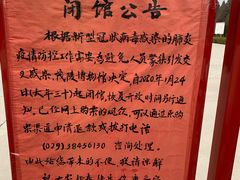 闭馆公告
根据新型冠状病毒感染的肺炎
疫情防控工作需要,为避免人员聚集引发交
叉感染,我院博物馆决定,自2020年1月24日
(大年三十)起闭馆,恢复开放时间另行通
知,已在网上购票的观众,可以通过原购
票渠道申请退款或拨打电话
(029)38456130 咨询处理。
由此给您带来的不便,敬请谅解